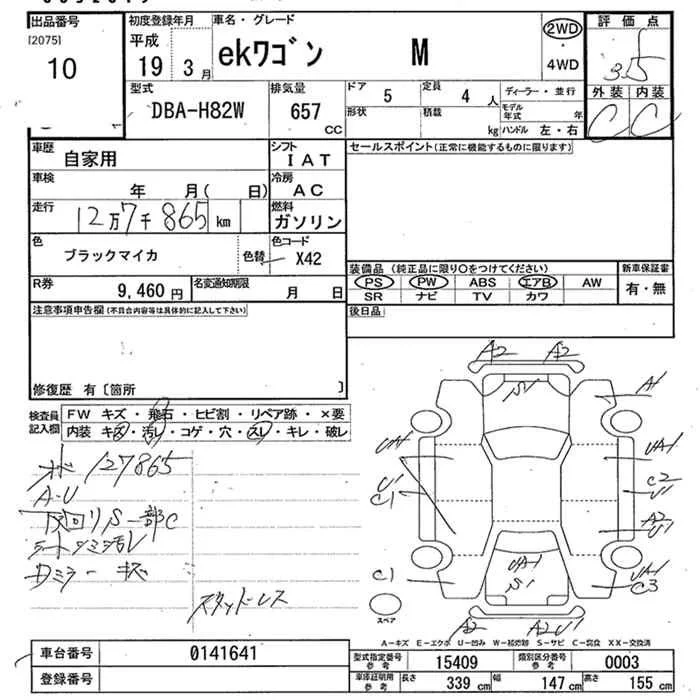 出品番号 初度登録年月 車名・グレード 評価点
[2075] 平成 2WD
10 19年 3月 ekワゴン M 4WD 3.5
型式 排気量 ドア 定員 ディーラー・並行 外装 内装
DBA-H82W 657 CC 5 4人 モデル年式 年 C C
形状 積載 kg ハンドル 左・右
車歴 自家用 シフト IAT セールスポイント(正常に機能するものに限ります)
車検 年 月( 日) 冷房 AC
走行 12万7千865 km 燃料 ガソリン
色 ブラックマイカ 色替 色コード X42
装備品 (純正品に限り○をつけてください) 新車保証書
R券 9,460円 名変通知期限 月 日 PS PW ABS エアB AW 有・無
SR ナビ TV カワ
注意事項申告欄(不具合内容等は具体的に記入して下さい) 後日品
修復歴 有〔箇所 〕
検査員記入欄 FW キズ・飛石・ヒビ割・リペア跡・×要
内装 キズ・汚レ・コゲ・穴・スレ・キレ・破レ
127865
A-U
下回リS一部C
シート シミ汚レ
Dミラーキズ
スタッドレス
A2 A2
S1 A1
UA1 UA1
U1 C1 C2 U1
A2 U1
C1 UA1 S1 UA1 C3
スペア A2 A2 U1
A-キズ E-エクボ U-凹み W-補修跡 S-サビ C-腐食 XX-交換済
車台番号 0141641 型式指定番号 参考 15409 類別区分番号 参考 0003
登録番号 車庫証明用 参考 長さ 339 cm 幅 147 cm 高さ 155 cm